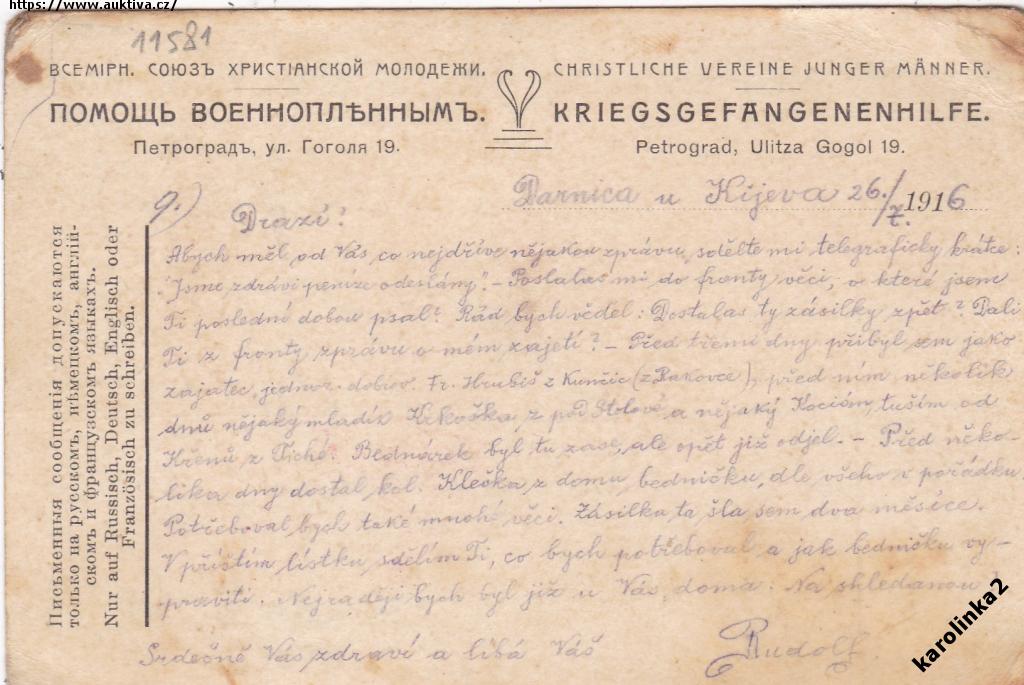 https://www.auktiva.cz/
11581
ВСЕМІРН. СОЮЗЪ ХРИСТІАНСКОЙ МОЛОДЕЖИ.
ПОМОЩЬ ВОЕННОПЛѢННЫМЪ.
Петроградъ, ул. Гоголя 19.
CHRISTLICHE VEREINE JUNGER MÄNNER.
KRIEGSGEFANGENENHILFE.
Petrograd, Ulitza Gogol 19.
Письменныя сообщенія допускаются
только на русскомъ, нѣмецкомъ, англій-
скомъ и французскомъ языкахъ.
Nur auf Russisch, Deutsch, Englisch oder
Französisch zu schreiben.
9.)
Darnica u Kijeva 26./7. 1916
Drazí!
Abych měl od Vás co nejdříve nějakou zprávu, sdělte mi telegraficky krátce:
"Jsme zdrávi peníze odeslány." - Poslalas mi do fronty věci, o které jsem
Ti poslední dobou psal? Rád bych věděl: Dostalas ty zásilky zpět? Dali
Ti z fronty zprávu o mém zajetí? - Před třemi dny přibyl sem jako
zajatec jednor. dobrov. Fr. Hrubiš z Kunčic (z Rakovce), před ním několik
dnů nějaký mladík Krkoška z pod Stolové a nějaký Kocián, tuším od
Křenů z Tiché. Bednárek byl tu zase, ale opět již odjel. - Před něko-
lika dny dostal kol. Klečka z domu bedničku, dle všeho v pořádku.
Potřeboval bych také mnohé věci. Zásilka ta šla sem dva měsíce.
V příštím lístku sdělím Ti, co bych potřeboval a jak bedničku vy-
praviti. Nejraději bych byl již u Vás doma. Na shledanou!
Srdečně Vás zdraví a líbá Váš
Rudolf.
karolinka2